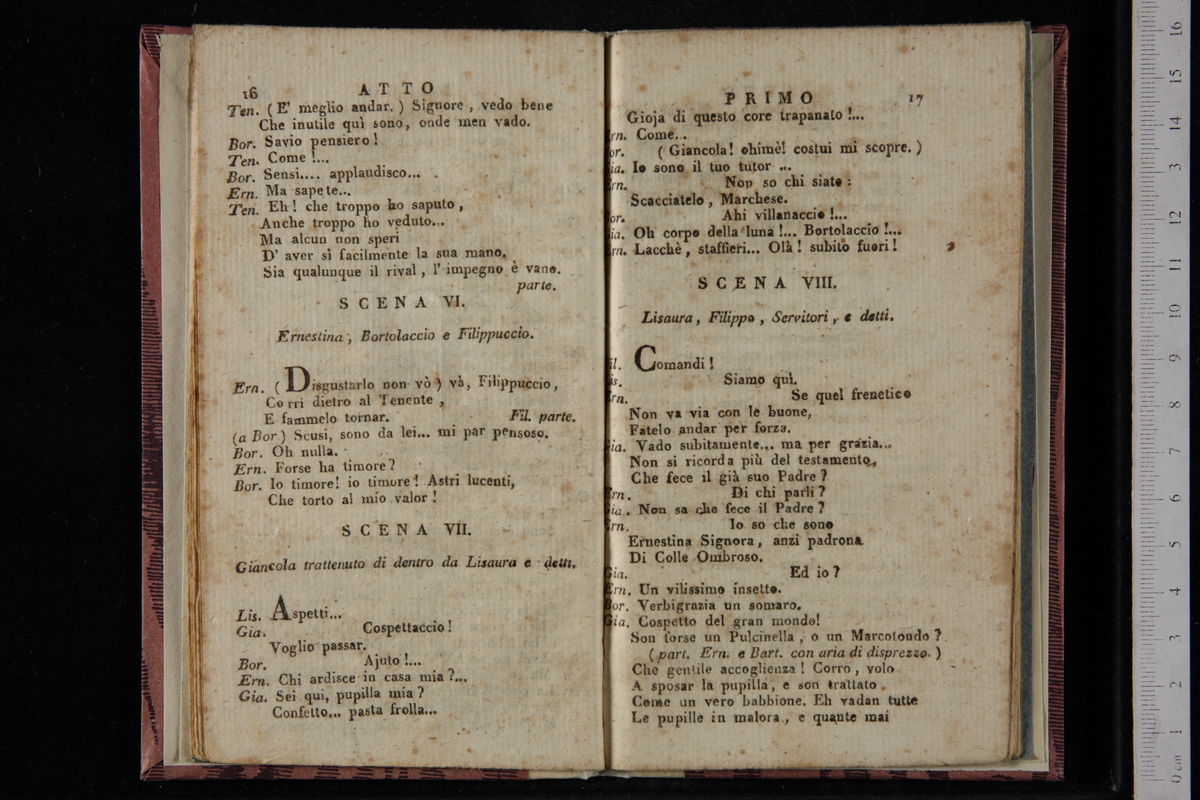 16 ATTO
Ten. (E' meglio andar.) Signore, vedo bene
Che inutile quì sono, onde men vado.
Bor. Savio pensiero!
Ten. Come!...
Bor. Sensi.... applaudisco...
Ern. Ma sapete...
Ten. Eh! che troppo ho saputo,
Anche troppo ho veduto...
Ma alcun non speri
D' aver sì facilmente la sua mano.
Sia qualunque il rival, l' impegno è vano.
parte.
SCENA VI.
Ernestina, Bortolaccio e Filippuccio.
Ern. (Disgustarlo non vò) và, Filippuccio,
Corri dietro al Tenente,
E fammelo tornar. Fil. parte.
(a Bor.) Scusi, sono da lei... mi par pensoso.
Bor. Oh nulla.
Ern. Forse ha timore?
Bor. Io timore! io timore! Astri lucenti,
Che torto al mio valor!
SCENA VII.
Giancola trattenuto di dentro da Lisaura e detti.
Lis. Aspetti...
Gia. Cospettaccio!
Voglio passar.
Bor. Ajuto!...
Ern. Chi ardisce in casa mia?...
Gia. Sei qui, pupilla mia?
Confetto... pasta frolla...
PRIMO 17
Gioja di questo core trapanato!...
rn. Come...
or. (Giancola! ohimè! costui mi scopre.)
ia. Io sono il tuo tutor ...
rn. Non so chi siate:
Scacciatelo, Marchese.
or. Ahi villanaccio!...
ia. Oh corpo della luna!... Bortolaccio!...
rn. Lacchè, staffieri... Olà! subito fuori!
SCENA VIII.
Lisaura, Filippo, Servitori, e detti.
il. Comandi!
is. Siamo quì.
rn. Se quel frenetico
Non va via con le buone,
Fatelo andar per forza.
ia. Vado subitamente... ma per grazia...
Non si ricorda più del testamento,
Che fece il già suo Padre?
Ern. Di chi parli?
ia. Non sa che fece il Padre?
Ern. Io so che sono
Ernestina Signora, anzi padrona
Di Colle Ombroso.
Gia. Ed io?
Ern. Un vilissimo insetto.
Bor. Verbigrazia un somaro.
Gia. Cospetto del gran mondo!
Son forse un Pulcinella, o un Marcotondo?
(part. Ern. e Bart. con aria di disprezzo.)
Che gentile accoglienza! Corro, volo
A sposar la pupilla, e son trattato
Come un vero babbione. Eh vadan tutte
Le pupille in malora, e quante mai
0 cm 1 2 3 4 5 6 7 8 9 10 11 12 13 14 15 16